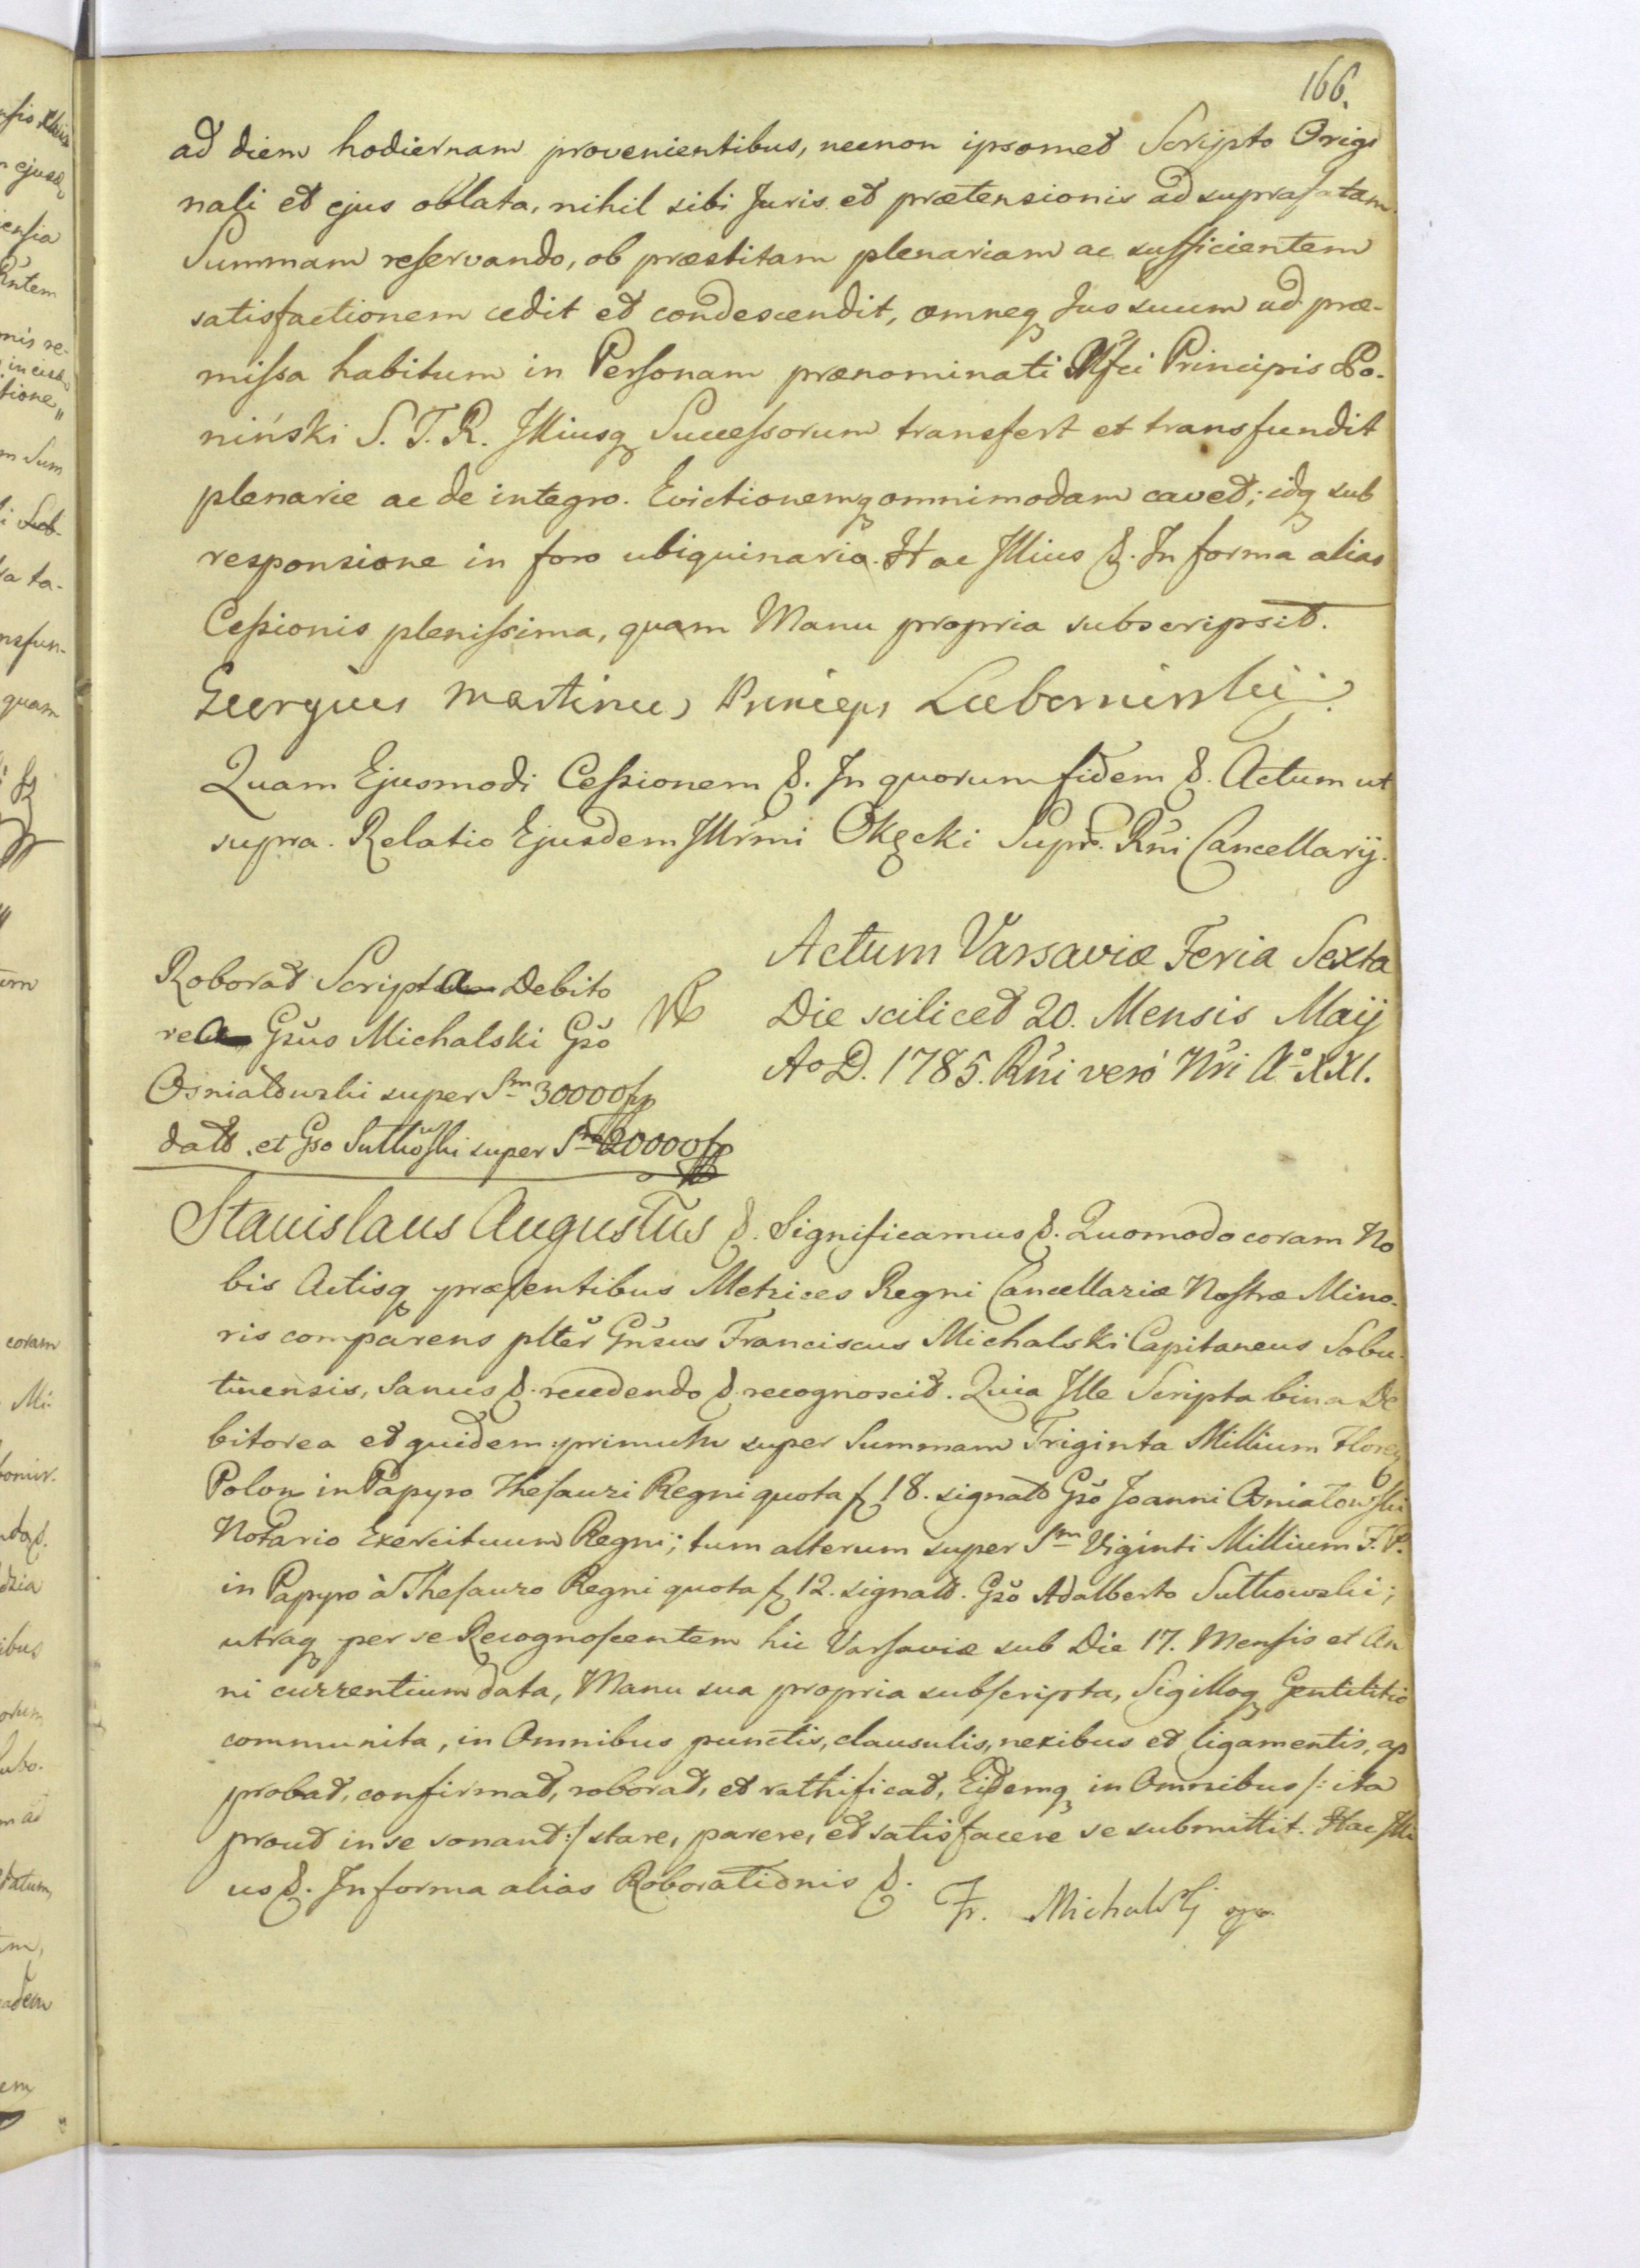 166.
ad diem hodiernam provenientibus, necnon ipsomet Scripto Origi
nali et ejus oblata, nihil sibi Juris et prætensionis ad suprafatam
Summam reservando, ob præstitam plenariam ac sufficientem
satisfactionem cedit et condescendit, omneq Jus suum ad præ-
missa habitum in Personam prænominati Principis Po-
niński S. J. R. Illiusq Successorum transfert et transfundit
plenarie ac de integro. Evictionemq omnimodam cavet; idq sub
responsione in foro ubiquinario. Hac Illius &. In forma alias
Cessionis plenissima, quam Manu propria subscripsit.
Georgius Martinus Princeps Lubomirski
Quam Ejusmodi Cessionem &. In quorum fidem &. Actum ut
supra. Relatio Ejusdem Illrmi Okęcki Supr. Rni Cancellarij.
Roborat Scripta Debito
rea Gsus Michalski Gso
Osniałowski super Sm 30000 fp
datt. et Gso Sutkowski super Sm 20000 fp
Actum Varsaviæ Feria Sexta
Die scilicet 20. Mensis Maij
Ao D. 1785. Rni vero Nri Ao XXI.
Stanislaus Augustus &. Significamus &. Quomodo coram No
bis Actisq præsentibus Metrices Regni Cancellariæ Nostræ Mino-
ris comparens plter Gnsus Franciscus Michalski Capitaneus Sobu-
tinensis, Sanus &. recedendo &. recognoscit. Quia Ille Scripta bina De
bitorea et quidem primum super Summam Triginta Millium Floren
Polon in Papyro Thesauri Regni quota f 18. signato Gso Joanni Osniałowski
Notario Exercituum Regni; tum alterum super Sm Viginti Millium F. P.
in Papyro à Thesauro Regni quota f 12. signato. Gso Adalberto Sutkowski;
utraq per se Recognoscentem hic Varsaviæ sub Die 17. Mensis et An
ni currentium data, Manu sua propria subscripta, Sigilloq Gentilitio
communita, in Omnibus punctis, clausulis, nexibus et ligamentis, ap
probat, confirmat, roborat, et rathificat, Eidemq in Omnibus /: ita
prout in se sonant :/ stare, parere, et satisfacere se submittit. Hac Illi
us &. In forma alias Roborationis &.
Fr. Michalski mp